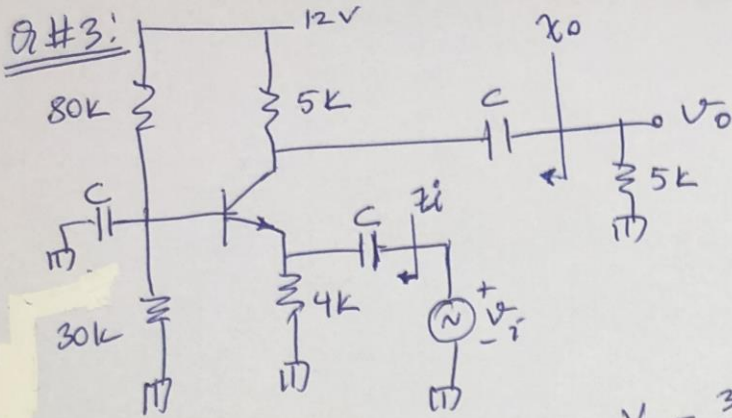 Q#3:
12V
80K
5K
C
Zo
Vo
5K
C
C
Zi
4K
30K
+
Vi
-
V
3